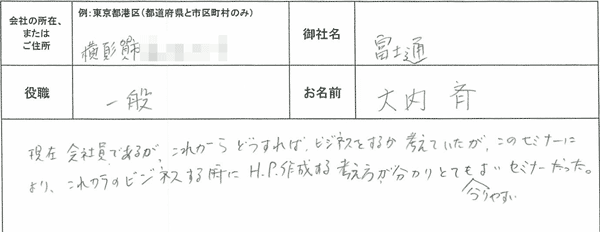 会社の所在、
または
ご住所
例:東京都港区(都道府県と市区町村のみ)
横須賀市
御社名
富士通
役職
一般
お名前
大内 斉
現在 会社員であるが、これから どうすれば、ビジネスをするか 考えていたが、このセミナーに
より、これからのビジネスする所に H.P.作成する 考え方が分かりとてもよい セミナーだった。
分りやすい